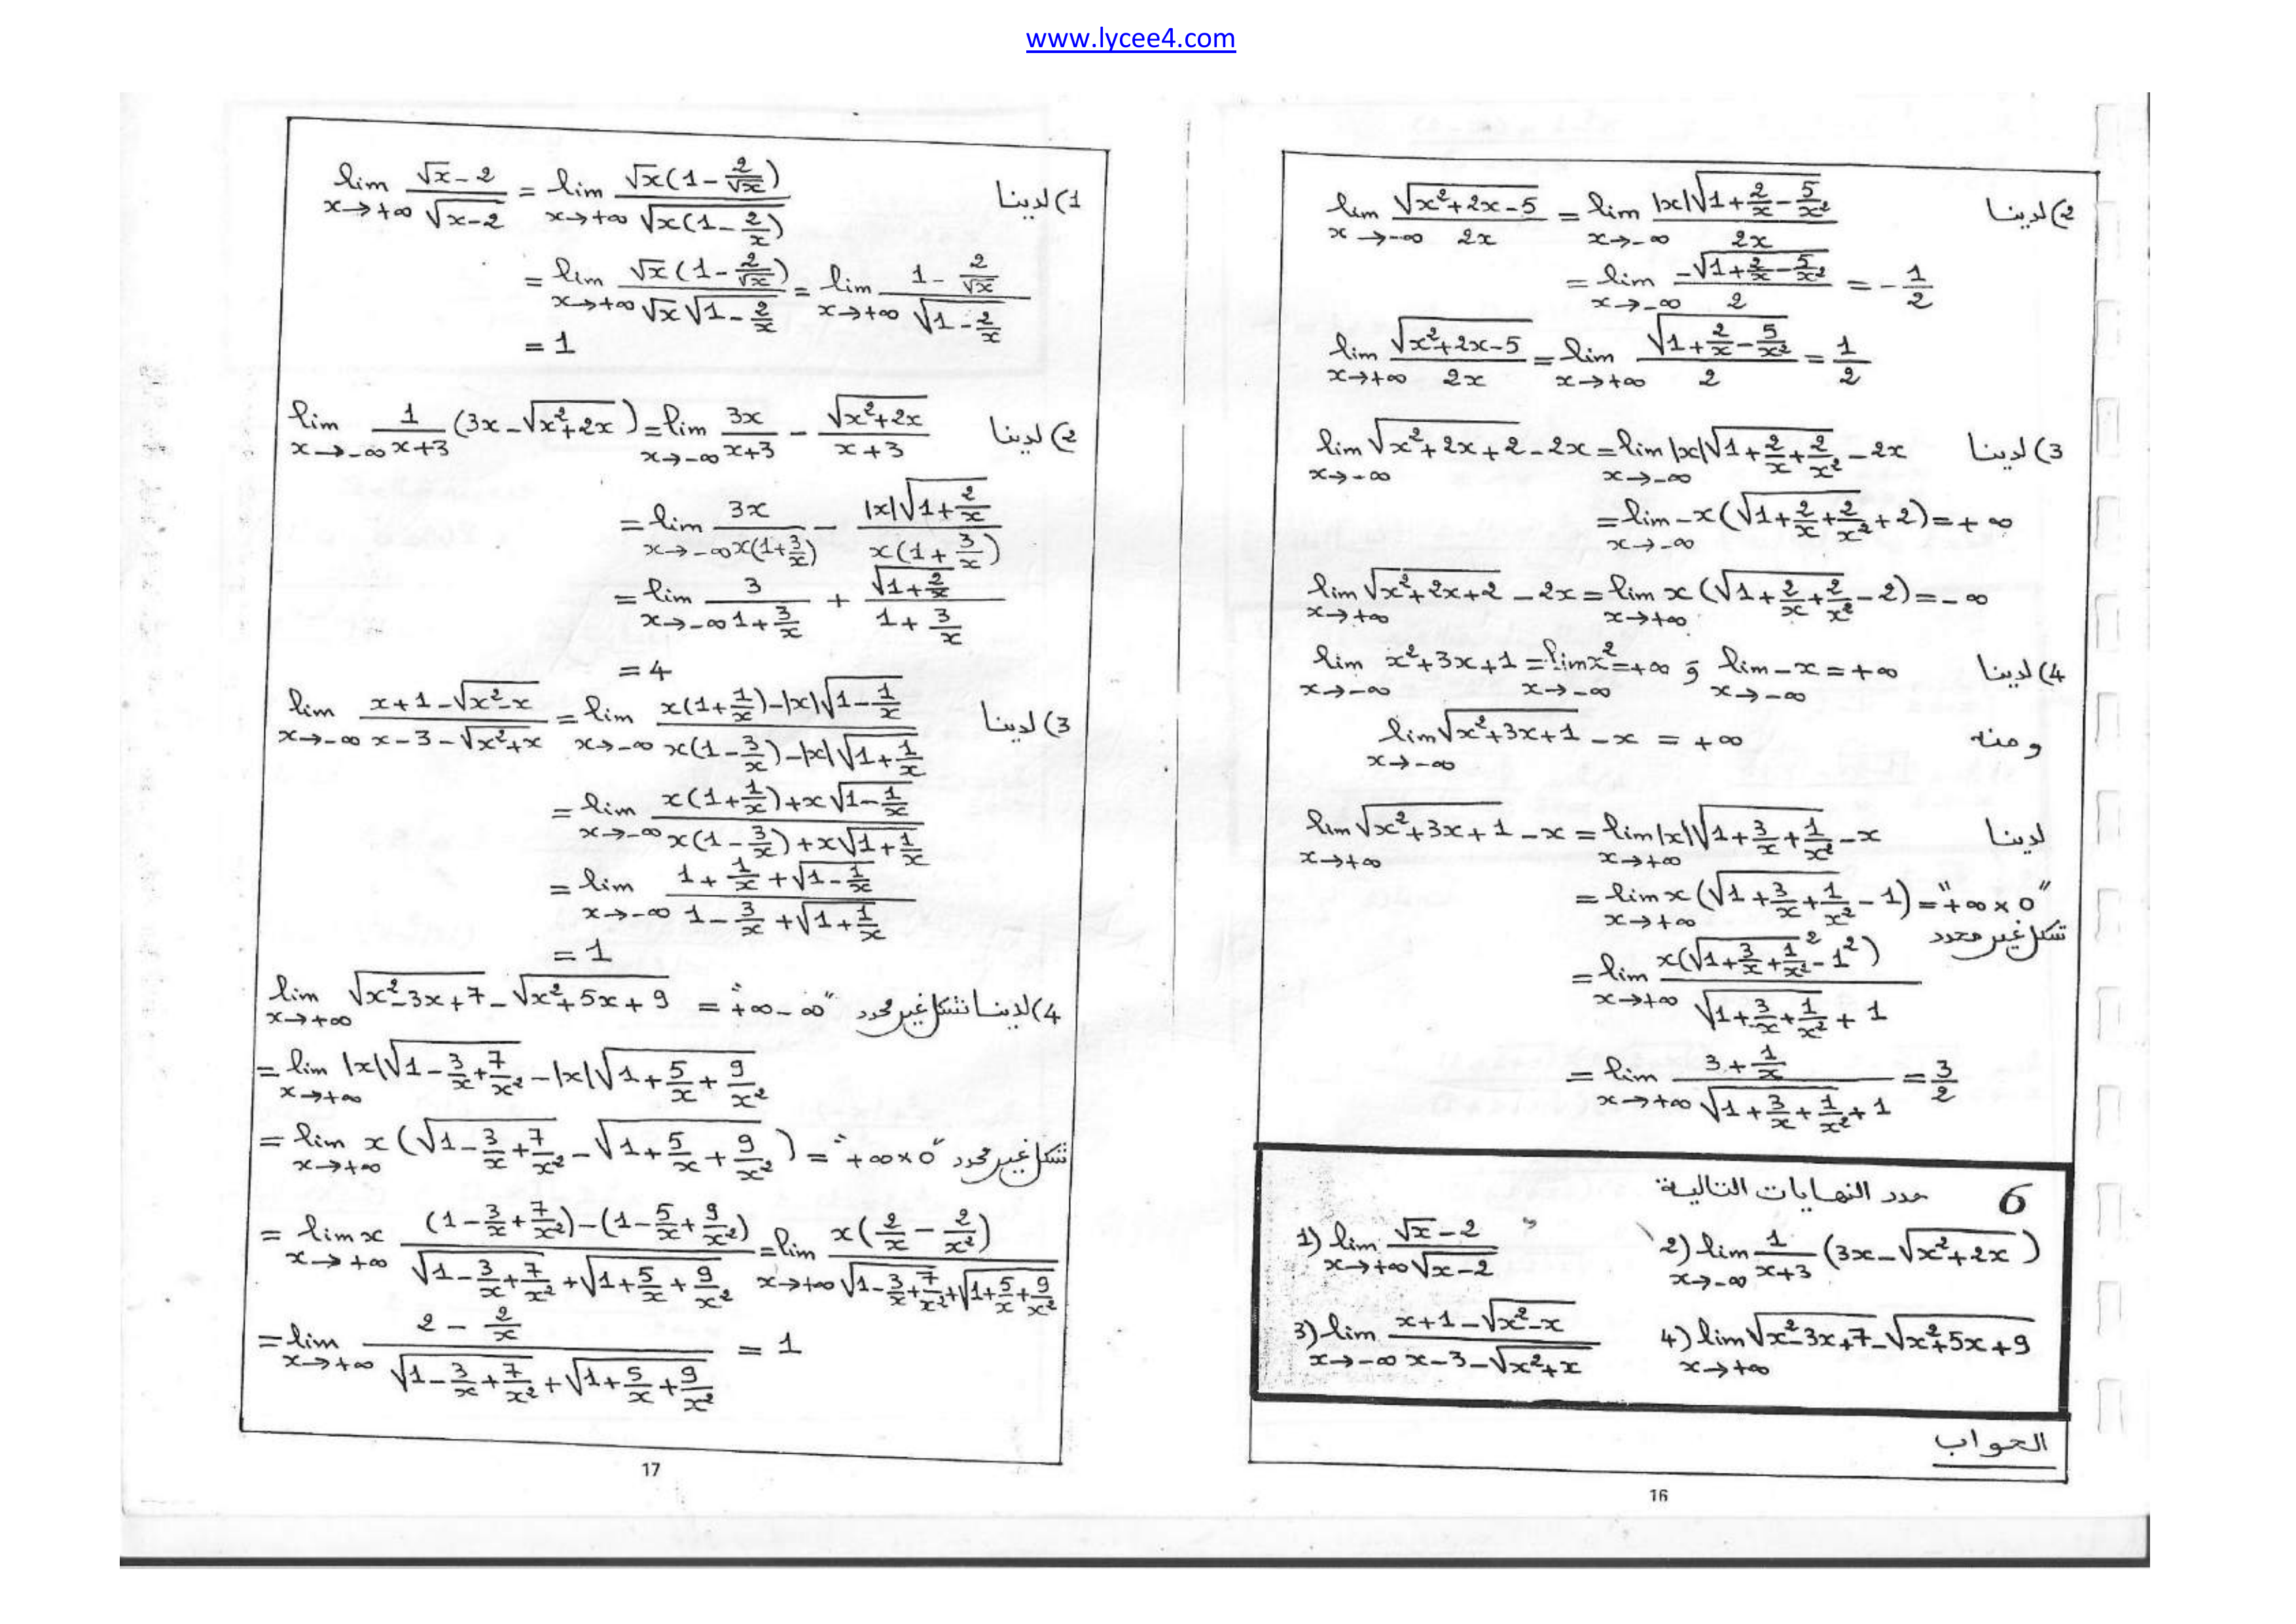 www.lycee4.com
2) لدينا lim_{x→-∞} \frac{\sqrt{x²+2x-5}}{2x} = lim_{x→-∞} \frac{|x|\sqrt{1+\frac{2}{x}-\frac{5}{x²}}}{2x}
= lim_{x→-∞} \frac{-\sqrt{1+\frac{2}{x}-\frac{5}{x²}}}{2} = -\frac{1}{2}
lim_{x→+∞} \frac{\sqrt{x²+2x-5}}{2x} = lim_{x→+∞} \frac{\sqrt{1+\frac{2}{x}-\frac{5}{x²}}}{2} = \frac{1}{2}
3) لدينا lim_{x→-∞} \sqrt{x²+2x+2}-2x = lim_{x→-∞} |x|\sqrt{1+\frac{2}{x}+\frac{2}{x²}}-2x
= lim_{x→-∞} -x(\sqrt{1+\frac{2}{x}+\frac{2}{x²}}+2) = +∞
lim_{x→+∞} \sqrt{x²+2x+2}-2x = lim_{x→+∞} x(\sqrt{1+\frac{2}{x}+\frac{2}{x²}}-2) = -∞
4) لدينا lim_{x→-∞} x²+3x+1 = lim_{x→-∞} x² = +∞ و lim_{x→-∞} -x = +∞
ومنه lim_{x→-∞} \sqrt{x²+3x+1}-x = +∞
لدينا lim_{x→+∞} \sqrt{x²+3x+1}-x = lim_{x→+∞} |x|\sqrt{1+\frac{3}{x}+\frac{1}{x²}}-x
= lim_{x→+∞} x(\sqrt{1+\frac{3}{x}+\frac{1}{x²}}-1) = "+∞×0"
شكل غير محدد
= lim_{x→+∞} \frac{x(\sqrt{1+\frac{3}{x}+\frac{1}{x²}}²-1²)}{\sqrt{1+\frac{3}{x}+\frac{1}{x²}}+1}
= lim_{x→+∞} \frac{3+\frac{1}{x}}{\sqrt{1+\frac{3}{x}+\frac{1}{x²}}+1} = \frac{3}{2}
6 حدد النهايات التالية:
1) lim_{x→+∞} \frac{\sqrt{x}-2}{\sqrt{x-2}} 2) lim_{x→-∞} \frac{1}{x+3}(3x-\sqrt{x²+2x})
3) lim_{x→-∞} \frac{x+1-\sqrt{x²-x}}{x-3-\sqrt{x²+x}} 4) lim_{x→+∞} \sqrt{x²-3x+7}-\sqrt{x²+5x+9}
الجواب
16
1) لدينا lim_{x→+∞} \frac{\sqrt{x}-2}{\sqrt{x-2}} = lim_{x→+∞} \frac{\sqrt{x}(1-\frac{2}{\sqrt{x}})}{\sqrt{x(1-\frac{2}{x})}}
= lim_{x→+∞} \frac{\sqrt{x}(1-\frac{2}{\sqrt{x}})}{\sqrt{x}\sqrt{1-\frac{2}{x}}} = lim_{x→+∞} \frac{1-\frac{2}{\sqrt{x}}}{\sqrt{1-\frac{2}{x}}}
= 1
2) لدينا lim_{x→-∞} \frac{1}{x+3}(3x-\sqrt{x²+2x}) = lim_{x→-∞} \frac{3x}{x+3} - \frac{\sqrt{x²+2x}}{x+3}
= lim_{x→-∞} \frac{3x}{x(1+\frac{3}{x})} - \frac{|x|\sqrt{1+\frac{2}{x}}}{x(1+\frac{3}{x})}
= lim_{x→-∞} \frac{3}{1+\frac{3}{x}} + \frac{\sqrt{1+\frac{2}{x}}}{1+\frac{3}{x}}
= 4
3) لدينا lim_{x→-∞} \frac{x+1-\sqrt{x²-x}}{x-3-\sqrt{x²+x}} = lim_{x→-∞} \frac{x(1+\frac{1}{x})-|x|\sqrt{1-\frac{1}{x}}}{x(1-\frac{3}{x})-|x|\sqrt{1+\frac{1}{x}}}
= lim_{x→-∞} \frac{x(1+\frac{1}{x})+x\sqrt{1-\frac{1}{x}}}{x(1-\frac{3}{x})+x\sqrt{1+\frac{1}{x}}}
= lim_{x→-∞} \frac{1+\frac{1}{x}+\sqrt{1-\frac{1}{x}}}{1-\frac{3}{x}+\sqrt{1+\frac{1}{x}}}
= 1
4) لدينا شكل غير محدد lim_{x→+∞} \sqrt{x²-3x+7}-\sqrt{x²+5x+9} = "+∞-∞"
= lim_{x→+∞} |x|\sqrt{1-\frac{3}{x}+\frac{7}{x²}}-|x|\sqrt{1+\frac{5}{x}+\frac{9}{x²}}
= lim_{x→+∞} x(\sqrt{1-\frac{3}{x}+\frac{7}{x²}}-\sqrt{1+\frac{5}{x}+\frac{9}{x²}}) = "+∞×0" شكل غير محدد
= lim_{x→+∞} x\frac{(1-\frac{3}{x}+\frac{7}{x²})-(1-\frac{5}{x}+\frac{9}{x²})}{\sqrt{1-\frac{3}{x}+\frac{7}{x²}}+\sqrt{1+\frac{5}{x}+\frac{9}{x²}}} = lim_{x→+∞} \frac{x(\frac{2}{x}-\frac{2}{x²})}{\sqrt{1-\frac{3}{x}+\frac{7}{x²}}+\sqrt{1+\frac{5}{x}+\frac{9}{x²}}}
= lim_{x→+∞} \frac{2-\frac{2}{x}}{\sqrt{1-\frac{3}{x}+\frac{7}{x²}}+\sqrt{1+\frac{5}{x}+\frac{9}{x²}}} = 1
17